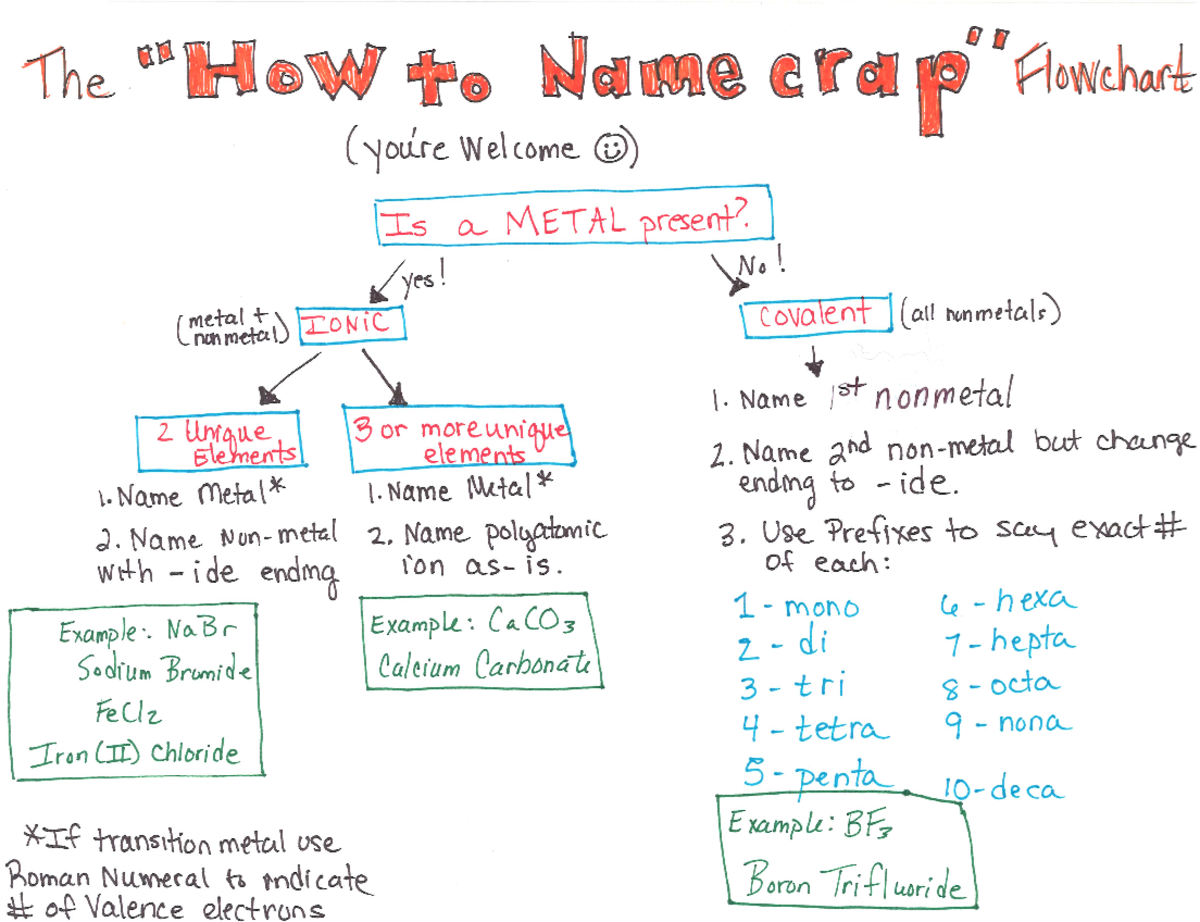 The "How to Name crap" Flowchart
(you're Welcome ☺)
Is a METAL present?
yes!
No!
(metal +
nonmetal)
IONIC
Covalent
(all nonmetals)
2 Unique
Elements
1. Name Metal*
2. Name Non-metal
with -ide ending
Example: NaBr
Sodium Bromide
FeCl2
Iron (II) Chloride
3 or more unique
elements
1. Name Metal*
2. Name polyatomic
ion as-is.
Example: CaCO3
Calcium Carbonate
1. Name 1st nonmetal
2. Name 2nd non-metal but change
ending to -ide.
3. Use Prefixes to say exact #
of each:
1 - mono
2 - di
3 - tri
4 - tetra
5 - penta
6 - hexa
7 - hepta
8 - octa
9 - nona
10 - deca
Example: BF3
Boron Trifluoride
*If transition metal use
Roman Numeral to indicate
# of Valence electrons